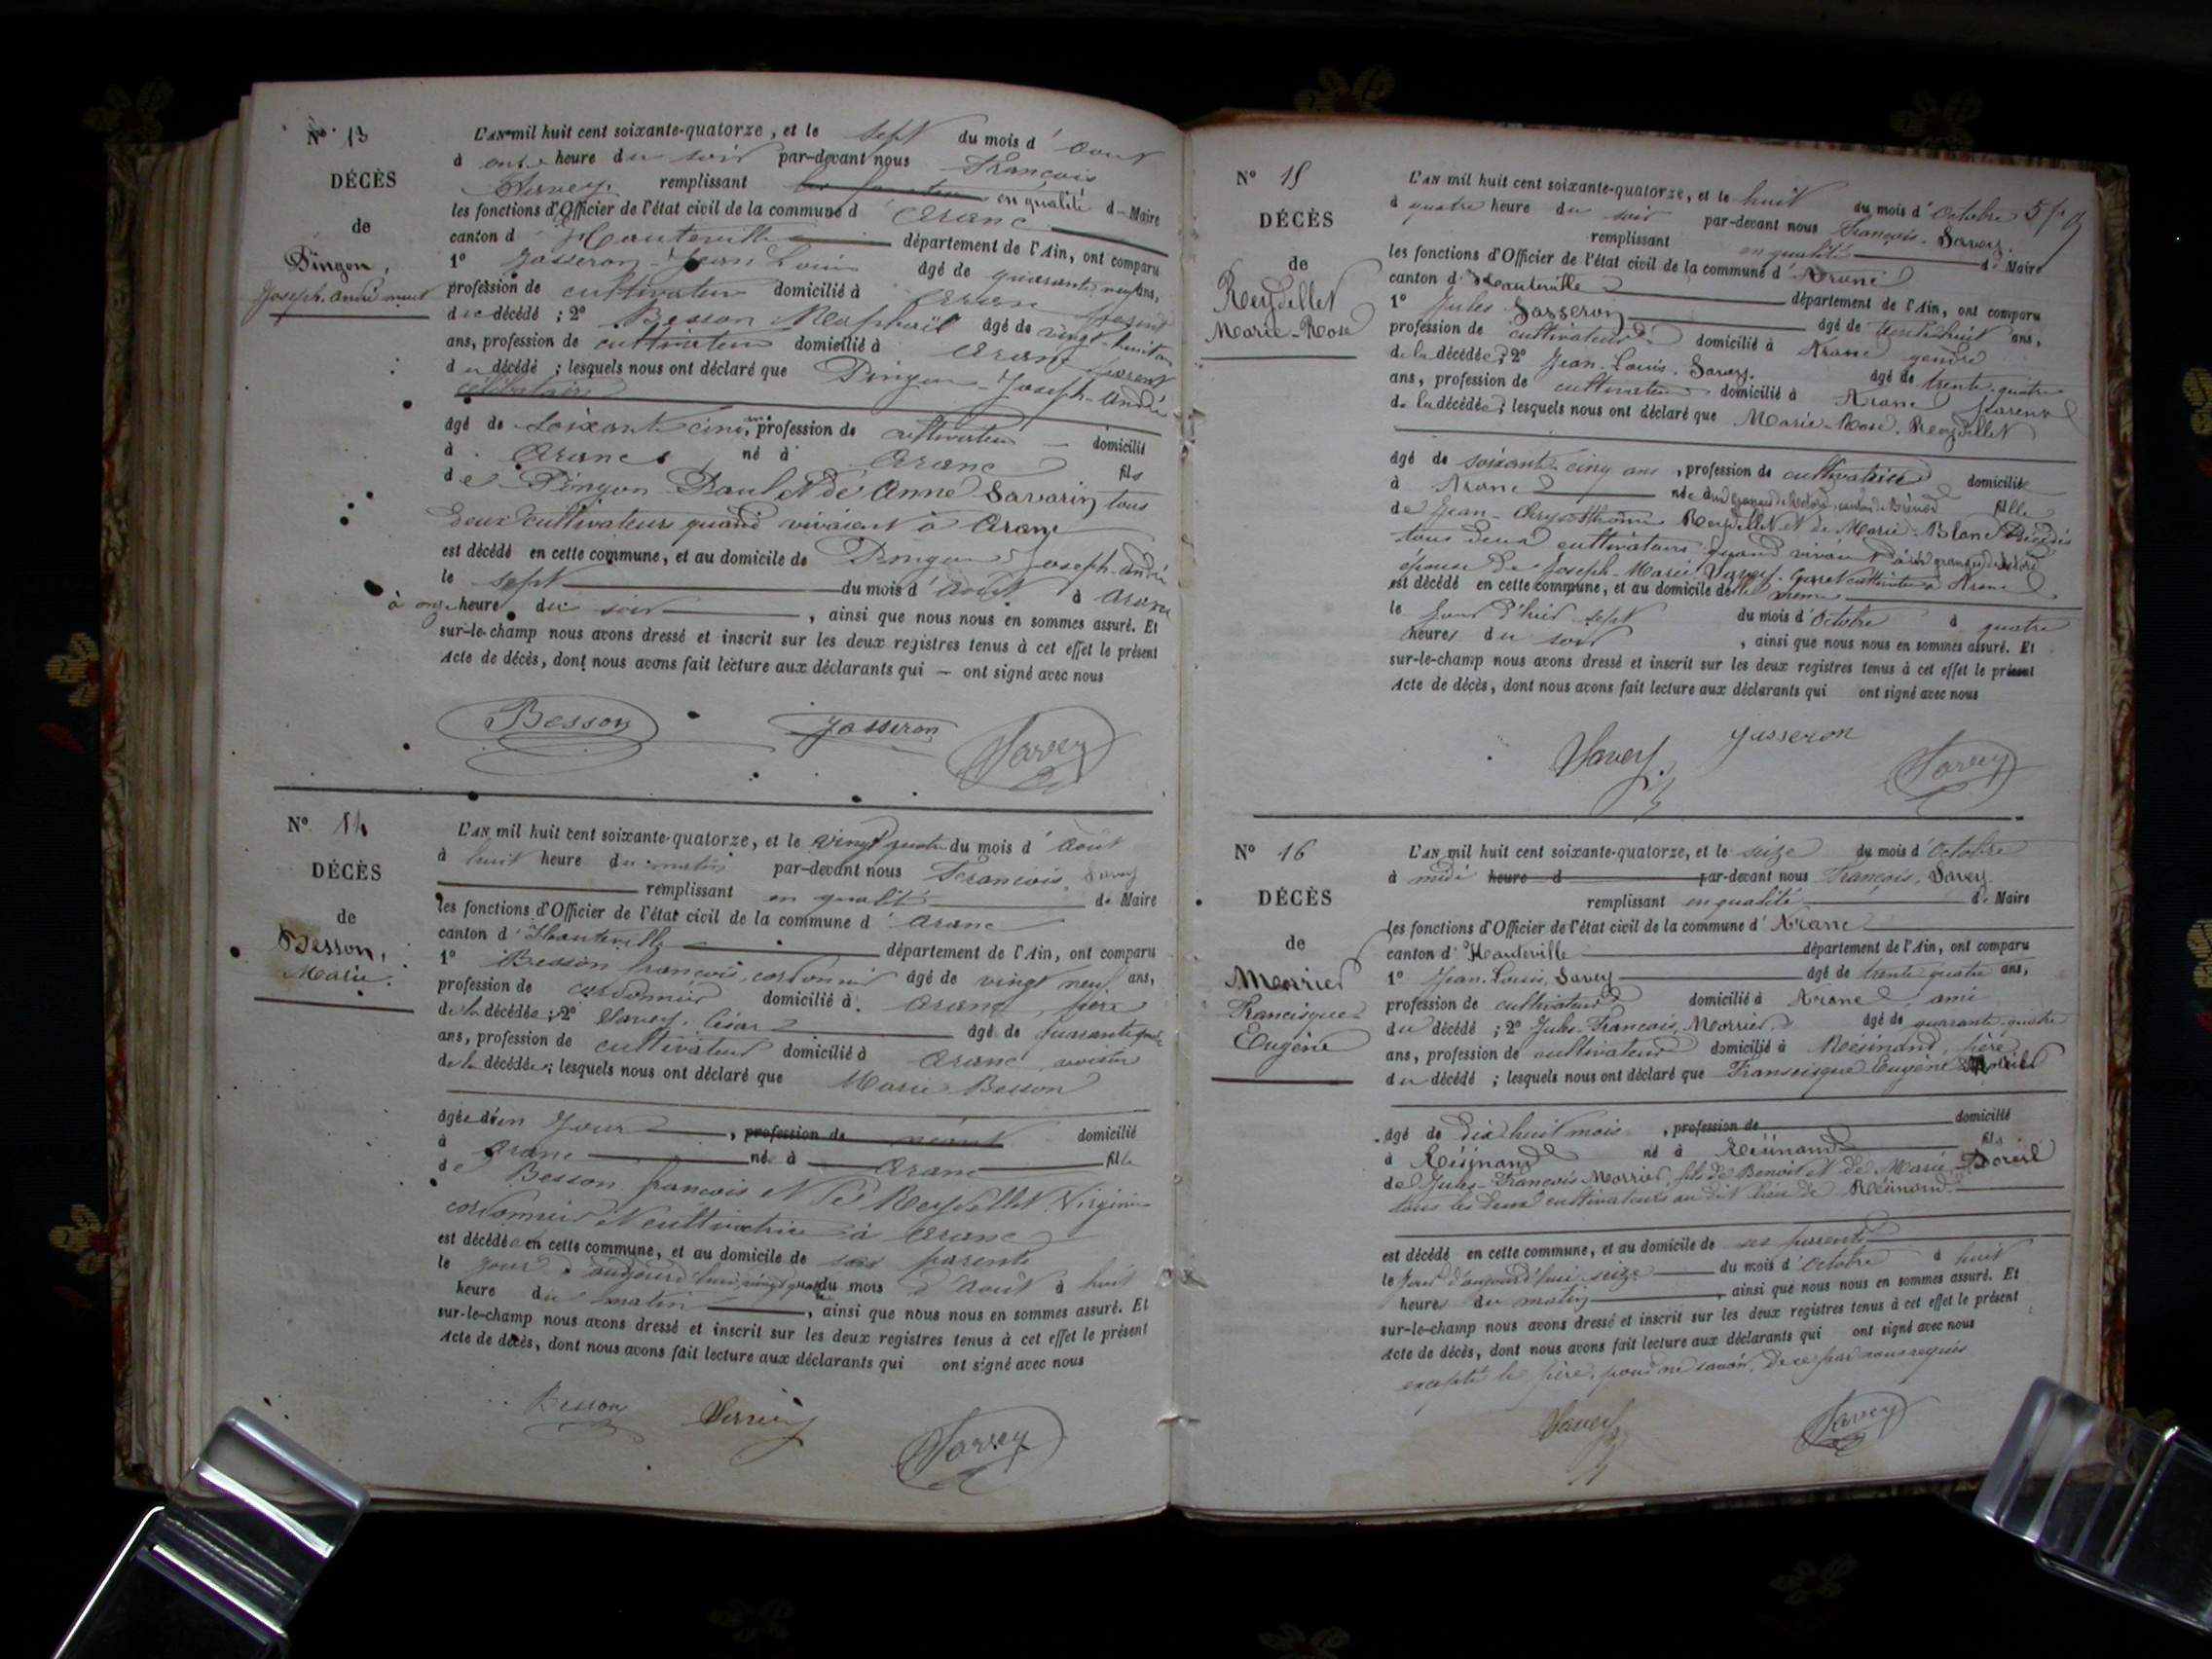 N° 13
DÉCÈS
de
Pingon,
Joseph. André
L'AN mil huit cent soixante-quatorze, et le sept du mois d' Aout
à onze heure du soir par-devant nous Francois
Savey. remplissant en qualité de Maire
les fonctions d'Officier de l'état civil de la commune d' Aranc
canton d' Hauteville département de l'Ain, ont comparu
1° Jasseron Jean Louis âgé de quarante neuf ans,
profession de cultivateur domicilié à Aranc parent
du décédé ; 2° Besson Raphaël âgé de vingt-huit
ans, profession de cultivateur domicilié à Aranc parent
du décédé ; lesquels nous ont déclaré que Pingon Joseph-André
célibataire
âgé de soixante cinq ans, profession de cultivateur domicilié
à Aranc né à Aranc fils
de Pingon Paul et de Anne Savarin tous
deux cultivateurs quand vivaient à Aranc
est décédé en cette commune, et au domicile de Pingon Joseph-André
le sept du mois d' Août à Aranc
à onze heure du soir , ainsi que nous nous en sommes assuré. Et
sur-le-champ nous avons dressé et inscrit sur les deux registres tenus à cet effet le présent
Acte de décès, dont nous avons fait lecture aux déclarants qui — ont signé avec nous
Besson Jasseron Savey
N° 14
DÉCÈS
de
Besson,
Marie.
L'AN mil huit cent soixante-quatorze, et le vingt quatre du mois d' Août
à huit heure du matin par-devant nous Francois Savey
remplissant en qualité de Maire
les fonctions d'Officier de l'état civil de la commune d' Aranc
canton d' Hauteville département de l'Ain, ont comparu
1° Besson francois, cordonnier âgé de vingt neuf ans,
profession de cordonnier domicilié à Aranc, père
de la décédée ; 2° Savey. César âgé de quarante
ans, profession de cultivateur domicilié à Aranc voisin
de la décédée ; lesquels nous ont déclaré que Marie Besson
âgée d'un Jour , profession de néant domicilié
à Aranc née à Aranc fille
de Besson francois et de Reydellet Virginie
cordonnier et cultivatrice à Aranc
est décédée en cette commune, et au domicile de ses parents
le jour d'aujourd'hui vingt quatre du mois d'Août à huit
heure du matin , ainsi que nous nous en sommes assuré. Et
sur-le-champ nous avons dressé et inscrit sur les deux registres tenus à cet effet le présent
Acte de décès, dont nous avons fait lecture aux déclarants qui ont signé avec nous
Besson Savey Savey
N° 15
DÉCÈS
de
Reydellet
Marie-Rose
L'AN mil huit cent soixante-quatorze, et le huit du mois d' Octobre
à quatre heure du soir par-devant nous François. Savey.
remplissant en qualité de Maire
les fonctions d'Officier de l'état civil de la commune d' Aranc
canton d' Hauteville département de l'Ain, ont comparu
1° Jules Jasseron âgé de trente huit ans,
profession de cultivateur domicilié à Aranc gendre
de la décédée ; 2° Jean-Louis. Savey. âgé de trente quatre
ans, profession de cultivateur domicilié à Aranc parent
de la décédée ; lesquels nous ont déclaré que Marie-Rose. Reydellet
âgé de soixante cinq ans , profession de cultivatrice domicilié
à Aranc née canton de Brénod fille
de Jean-Chrysosthôme Reydellet et de Marie-Blanc Décédés
tous deux cultivateurs quand vivaient
épouse de Joseph-Marie Savey cultivateur à Aranc
est décédé en cette commune, et au domicile de
le jour d'hier sept du mois d' Octobre à quatre
heures du soir , ainsi que nous nous en sommes assuré. Et
sur-le-champ nous avons dressé et inscrit sur les deux registres tenus à cet effet le présent
Acte de décès, dont nous avons fait lecture aux déclarants qui ont signé avec nous
Savey Jasseron Savey
N° 16
DÉCÈS
de
Morrier
Francisque
Eugène
L'AN mil huit cent soixante-quatorze, et le seize du mois d' Octobre
à midi heure d par-devant nous François. Savey
remplissant en qualité de Maire
les fonctions d'Officier de l'état civil de la commune d' Aranc
canton d' Hauteville département de l'Ain, ont comparu
1° Jean-Louis, Savey âgé de trente quatre ans,
profession de cultivateur domicilié à Aranc ami
du décédé ; 2° Jules-François, Morrier, âgé de quarante quatre
ans, profession de cultivateur domicilié à Résinand, père
du décédé ; lesquels nous ont déclaré que Francisque Eugène
âgé de dix huit mois , profession de domicilié
à Résinand né à Résinand fils
de Jules-François Morrier, fils de Benoit et de Marie
tous les deux cultivateurs au dit lieu de Résinand
est décédé en cette commune, et au domicile de ses parents
le jour d'aujourd'hui seize du mois d' Octobre à huit
heures du matin , ainsi que nous nous en sommes assuré. Et
sur-le-champ nous avons dressé et inscrit sur les deux registres tenus à cet effet le présent
Acte de décès, dont nous avons fait lecture aux déclarants qui ont signé avec nous
excepté le père, pour ne savoir, de ce par nous requis
Savey Savey